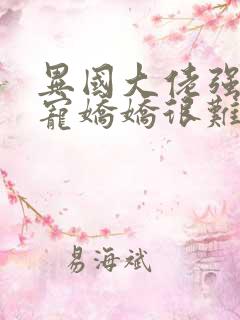 異國大佬强
寵嬌嬌很難
易海斌